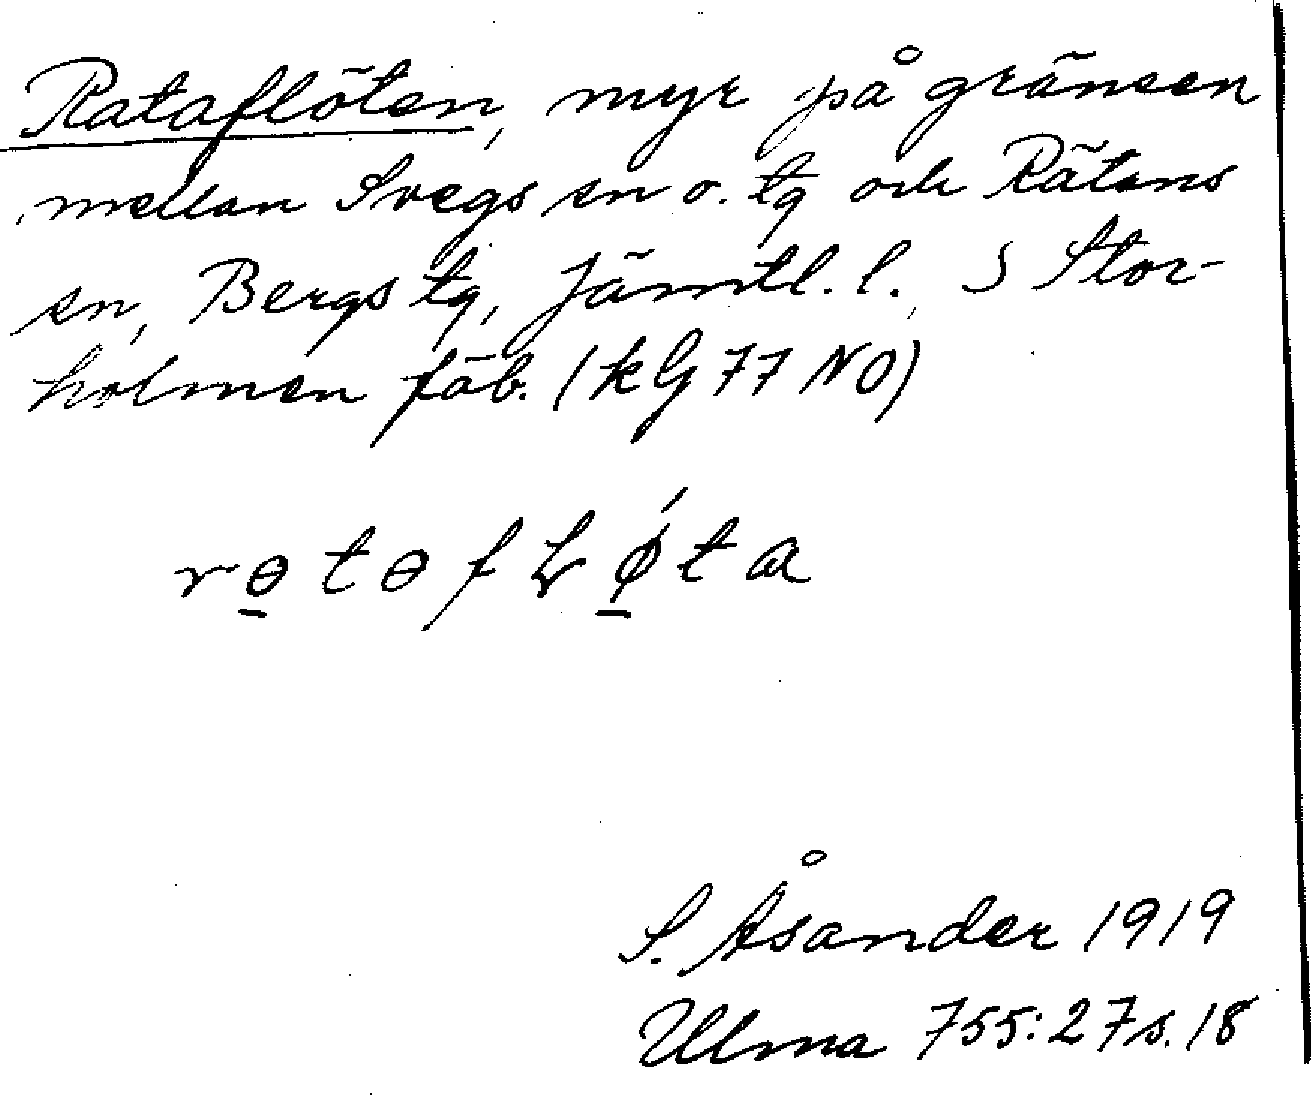 Rataflöten, myr på gränsen
mellan Svegs sn o. tg och Rätans
sn, Bergs tg, Jämtl. l. S Stor-
holmen fäb. (kG 77 NO)
rɵ̲tɵfLǿ̲ta
S. Åsander 1919
Ulma 755:27 s. 18